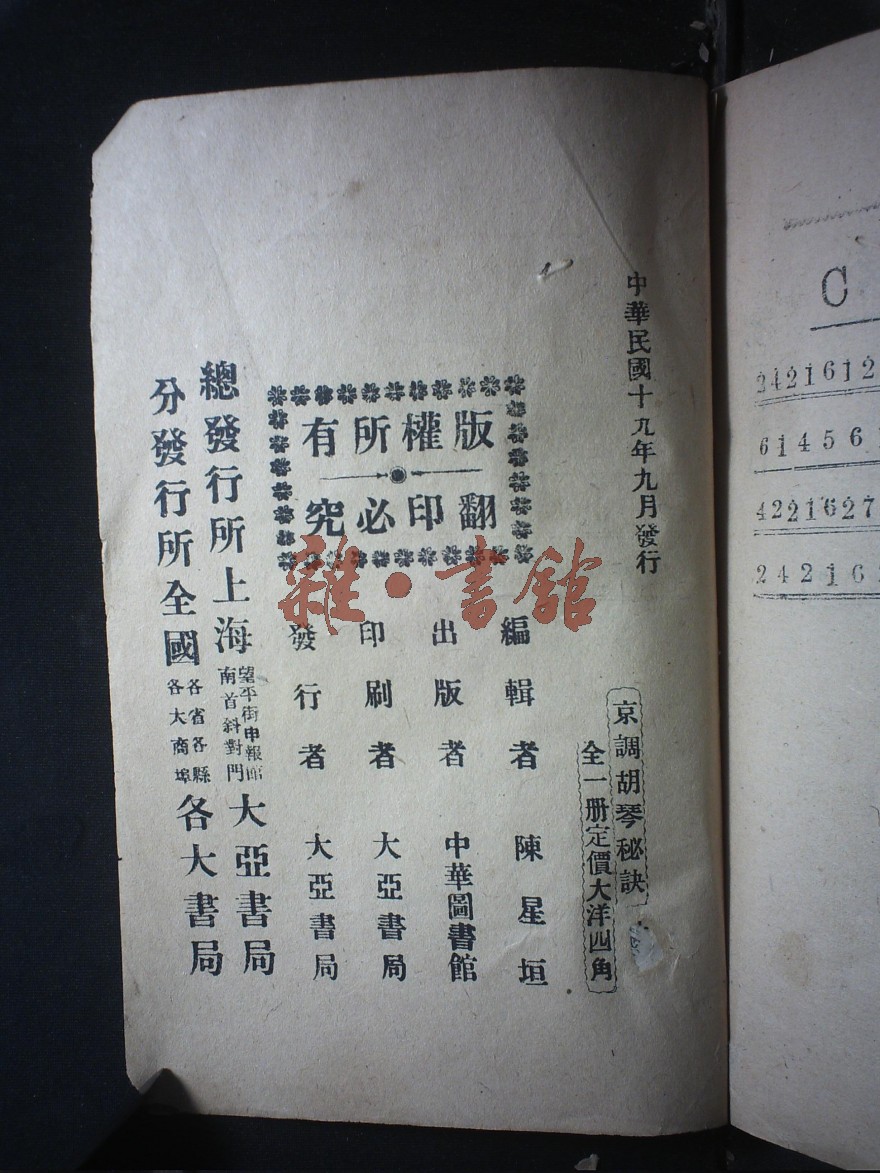 中華民國十九年九月發行
京調胡琴秘訣
全一册定價大洋四角
版權所有
翻印必究
編輯者 陳星垣
出版者 中華圖書館
印刷者 大亞書局
發行者 大亞書局
總發行所上海望平街申報館南首斜對門大亞書局
分發行所全國各省各縣各大商埠各大書局
雜·書館
C
2421612
61456
4221627
242161